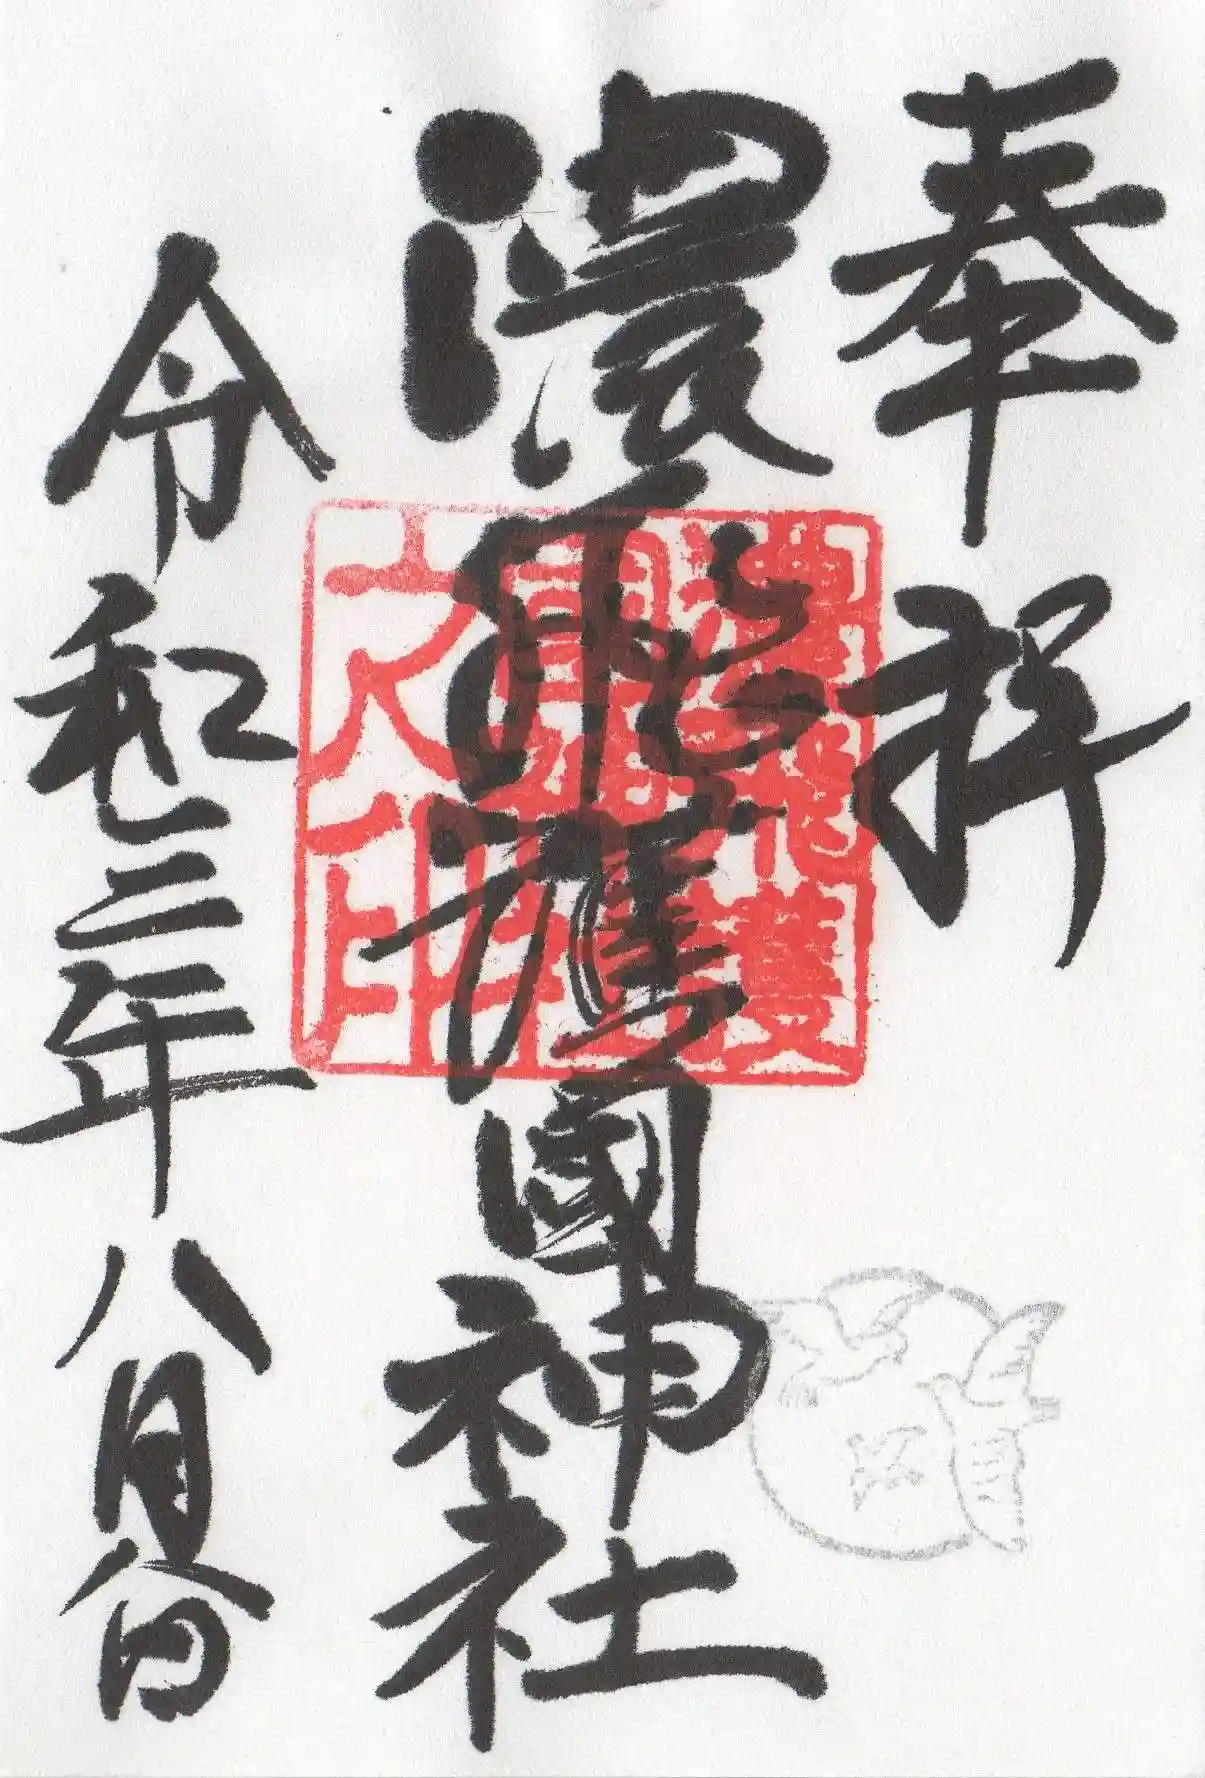 奉拝
濃飛護國神社
令和三年八月日